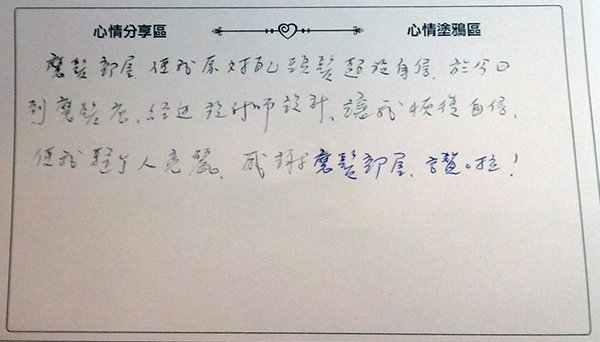 心情分享區 心情塗鴉區
魔髮部屋,使我原对自己頭髮超没自信,於今日
到魔髮屋,經过設計師設計,讓我恢復自信,
使我整个人亮麗,感謝魔髮部屋,讚。啦!